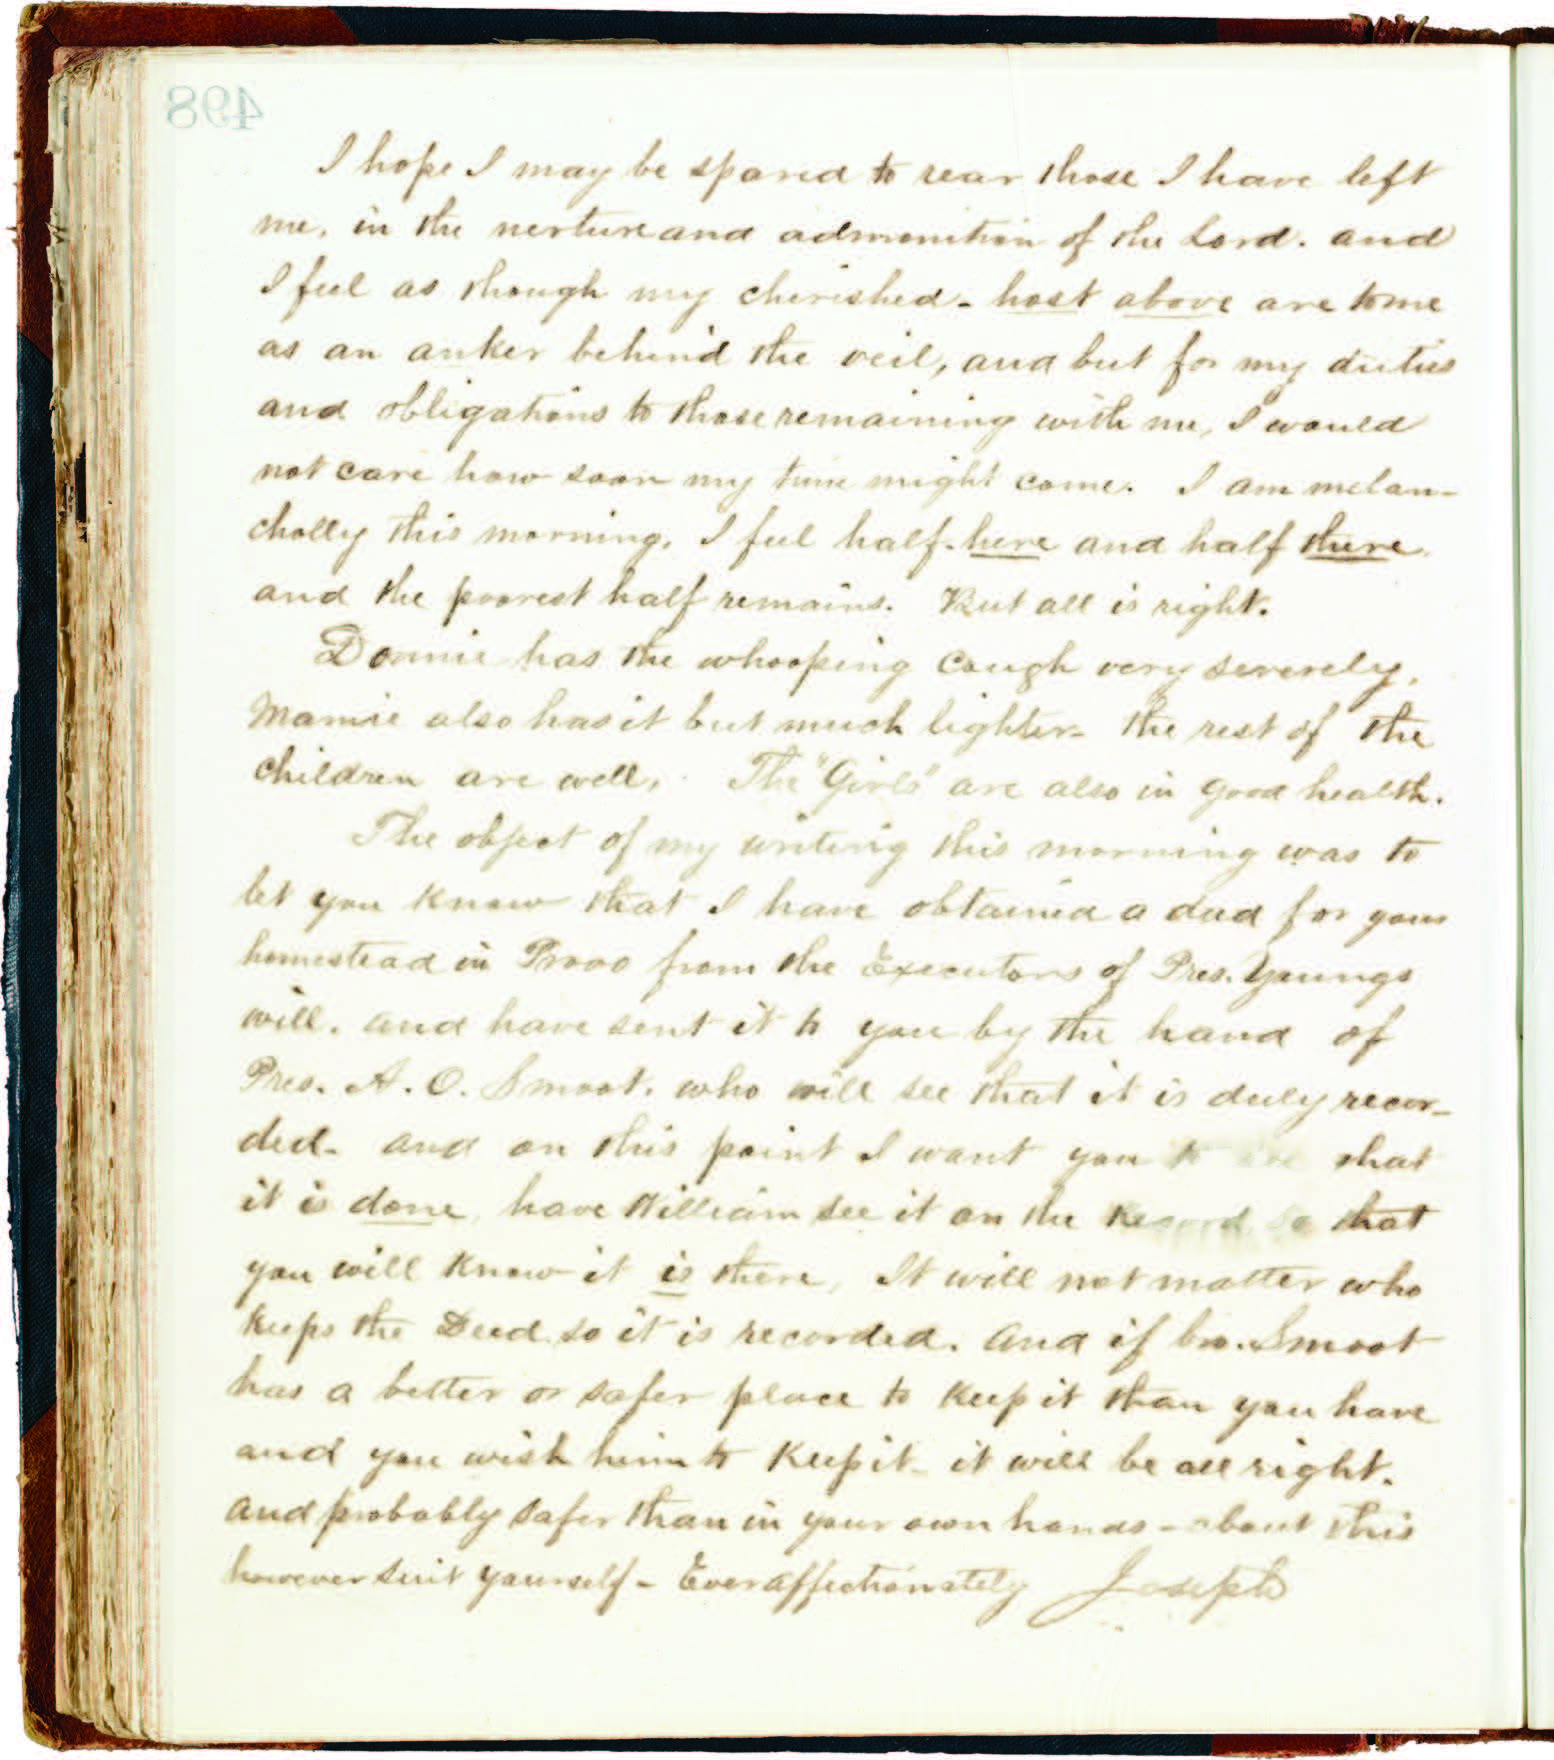 498
I hope I may be spared to rear those I have left
me, in the nerture and admonition of the Lord. and
I feel as though my cherished - host above are to me
as an anker behind the veil, and but for my duties
and obligations to those remaining with me, I would
not care how soon my time might come. I am melan-
cholly this morning, I feel half-here and half there.
and the poorest half remains. But all is right.
Donnie has the whooping cough very severely,
Mamie also has it but much lighter - the rest of the
children are well. The "Girls" are also in good health.
The object of my writing this morning was to
let you know that I have obtained a deed for your
homestead in Provo from the Executors of Pres. Youngs
will. and have sent it to you by the hand of
Pres. A. O. Smoot. who will see that it is duly recor-
ded - and on this point I want you to see that
it is done, have William see it on the Record, so that
you will know it is there, It will not matter who
keeps the Deed so it is recorded. and if bro. Smoot
has a better or safer place to keep it than you have
and you wish him to keep it - it will be all right.
and probably safer than in your own hands - about this
however suit yourself - Ever affectionately Joseph